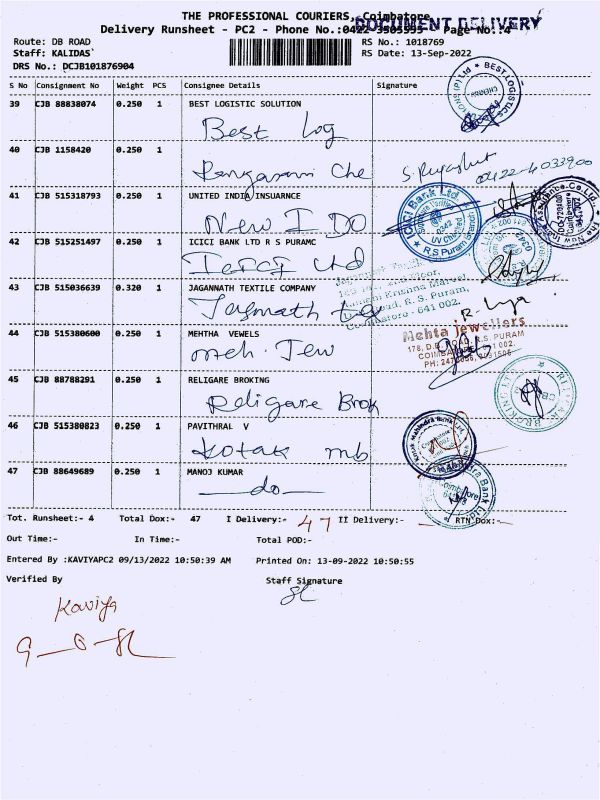 THE PROFESSIONAL COURIERS, Coimbatore
DOCUMENT DELIVERY
Delivery Runsheet - PC2 - Phone No.:0422 3505555 Page No.:4
Route: DB ROAD RS No.: 1018769
Staff: KALIDAS RS Date: 13-Sep-2022
DRS No.: DCJB101876904
S No Consignment No Weight PCS Consignee Details Signature
39 CJB 88838074 0.250 1 BEST LOGISTIC SOLUTION
Best Log
40 CJB 1158420 0.250 1
41 CJB 515318793 0.250 1 UNITED INDIA INSUARNCE
New I DO
42 CJB 515251497 0.250 1 ICICI BANK LTD R S PURAMC
ICICI Ltd
ICICI Bank Ltd.
R S Puram Branch
43 CJB 515036639 0.320 1 JAGANNATH TEXTILE COMPANY
R. S. Puram,
Coimbatore - 641 002.
44 CJB 515380600 0.250 1 MEHTHA VEWELS
meh. Jew
Mehta jewellers
178, D.B. ROAD, R.S. PURAM
45 CJB 88788291 0.250 1 RELIGARE BROKING
Religare Brok
46 CJB 515380823 0.250 1 PAVITHRAL V
Kotak mb
47 CJB 88649689 0.250 1 MANOJ KUMAR
do
Tot. Runsheet:- 4 Total Dox:- 47 I Delivery:- 47 II Delivery:- RTN Dox:-
Out Time:- In Time:- Total POD:-
Entered By :KAVIYAPC2 09/13/2022 10:50:39 AM Printed On: 13-09-2022 10:50:55
Verified By Staff Signature
Kaviya